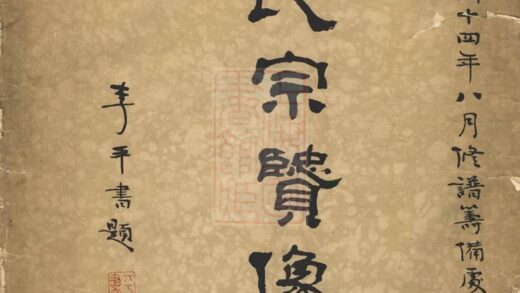 十四年八月修譜籌備處
氏宗贒像
李平書題